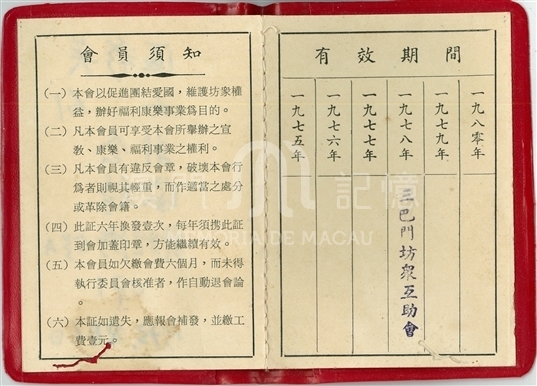 會員須知
(一) 本會以促進團結愛國，維護坊衆權
益，辦好福利康樂事業爲目的。
(二) 凡本會員可享受本會所舉辦之宣
敎、康樂、福利事業之權利。
(三) 凡本會員有違反會章，破壞本會行
爲者則視其輕重，而作適當之處分
或革除會籍。
(四) 此証六年換發壹次，每年須携此証
到會加蓋印章，方能繼續有效。
(五) 本會員如欠繳會費六個月，而未得
執行委員會核准者，作自動退會論
。
(六) 本証如遺失，應報會補發，並繳工
費壹元。
有效期間
一九七五年
一九七六年
一九七七年
一九七八年
一九七九年
一九八零年
三巴門坊眾互助會
記憶
MEMÓRIA DE MACAU